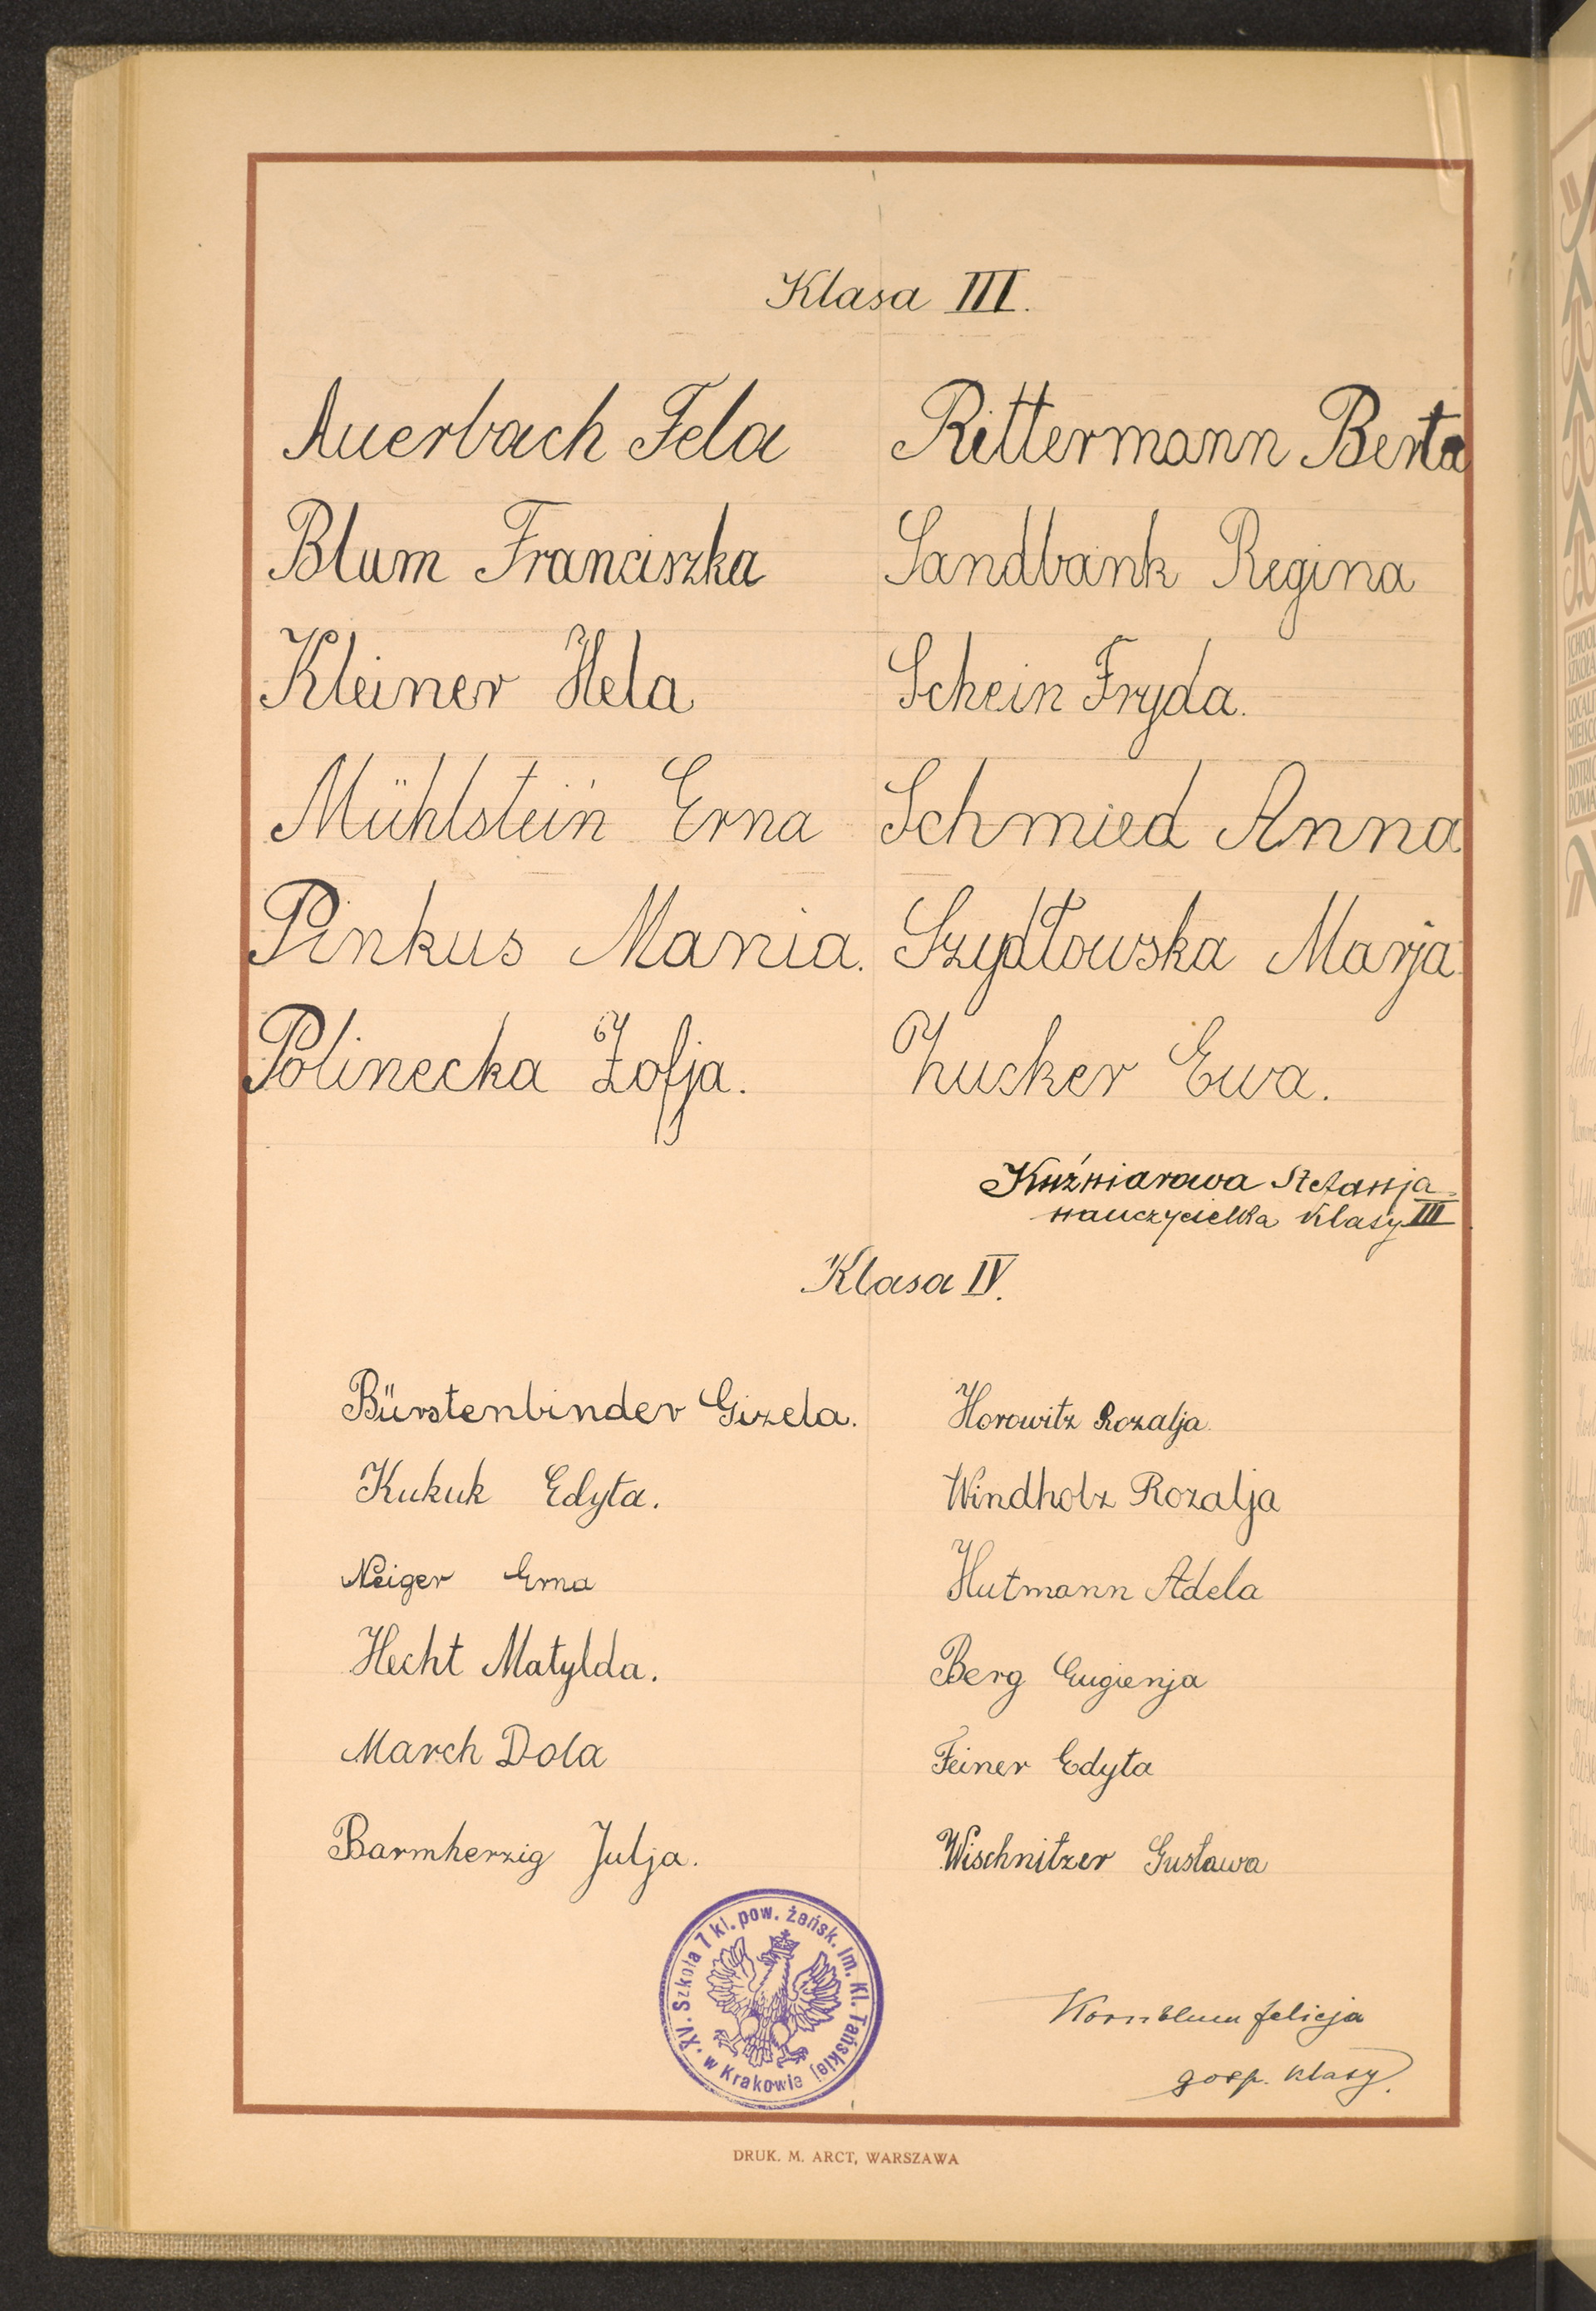 Klasa III.
Auerbach Fela
Blum Franciszka
Kleiner Hela
Mühlstein Erna
Pinkus Mania.
Polinecka Zofja.
Rittermann Berta
Sandbank Regina
Schein Fryda.
Schmied Anna
Szydłowska Marja
Zucker Ewa.
Kuźniarowa Stefanja
nauczycielka klasy III
Klasa IV.
Bürstenbinder Gizela.
Kukuk Edyta.
Neiger Erna
Hecht Matylda.
March Dola
Barmherzig Julja.
Horowitz Rozalja
Windholz Rozalja
Hutmann Adela
Berg Eugienja
Feiner Edyta
Wischnitzer Gustawa
XV. Szkoła 7 kl. pow. żeńsk. im. Kl. Tańskiej
w Krakowie
Kornblum Felicja
gosp. klasy.
DRUK. M. ARCT, WARSZAWA